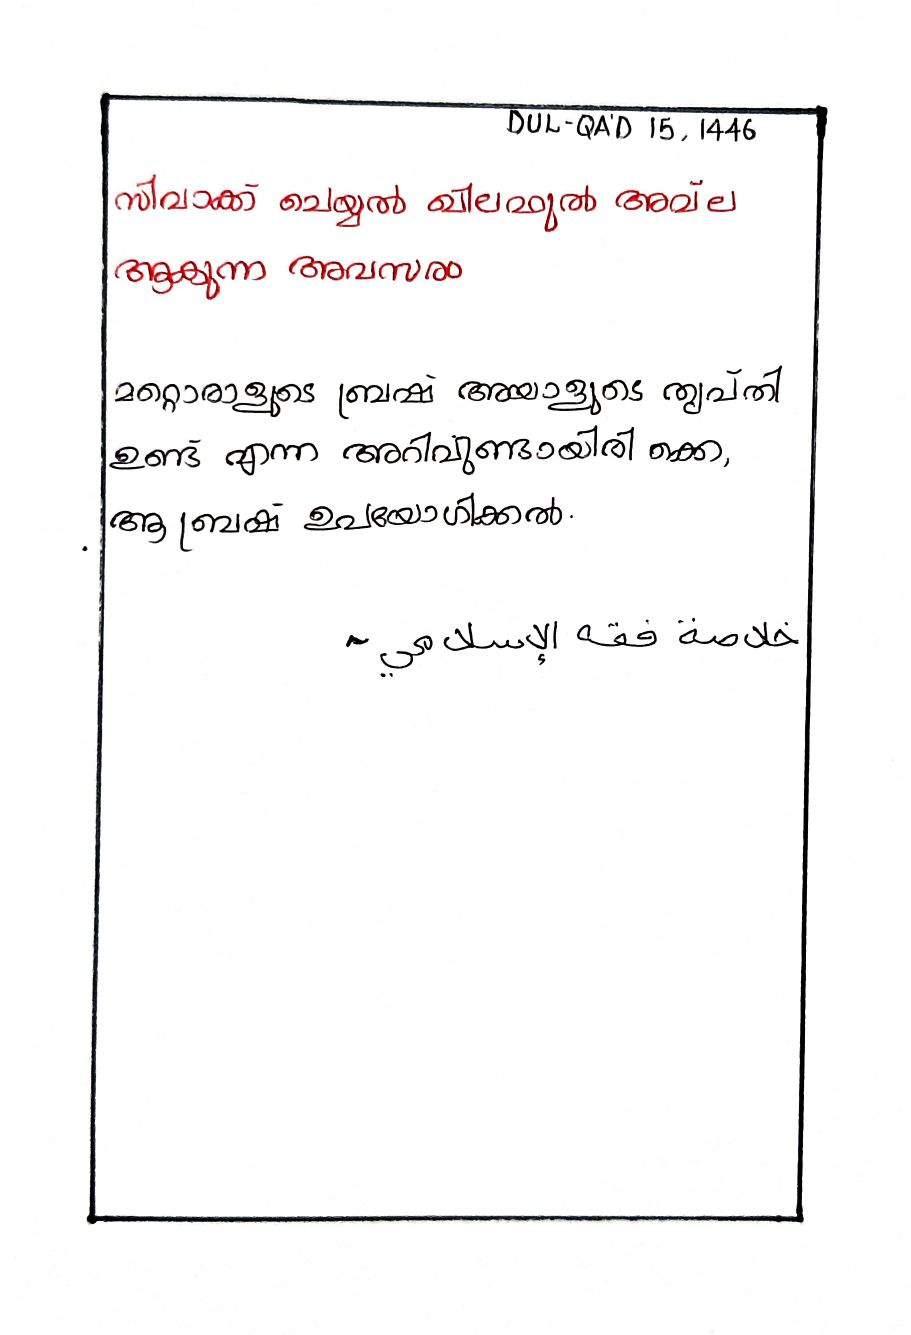 DUL-QA'D 15, 1446
സിവാക്ക് ചെയ്യൽ ഖിലാഫുൽ അവ്ല
ആകുന്ന അവസരം
മറ്റൊരാളുടെ ബ്രഷ് അയാളുടെ തൃപ്തി
ഉണ്ട് എന്ന അറിവുണ്ടായിരിക്കെ,
ആ ബ്രഷ് ഉപയോഗിക്കൽ.
خلاصة فقه الإسلامي ~